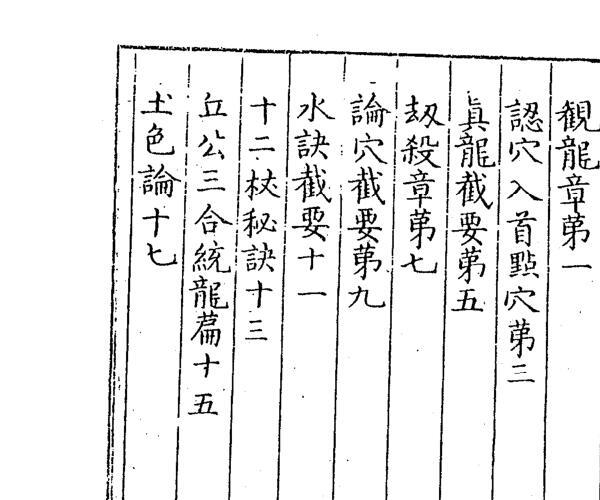 観龍章苐一
認穴入首點穴苐三
真龍截要苐五
刼殺章苐七
論穴截要苐九
水訣截要十一
十二杖秘訣十三
丘公三合統龍篇十五
土色論十七